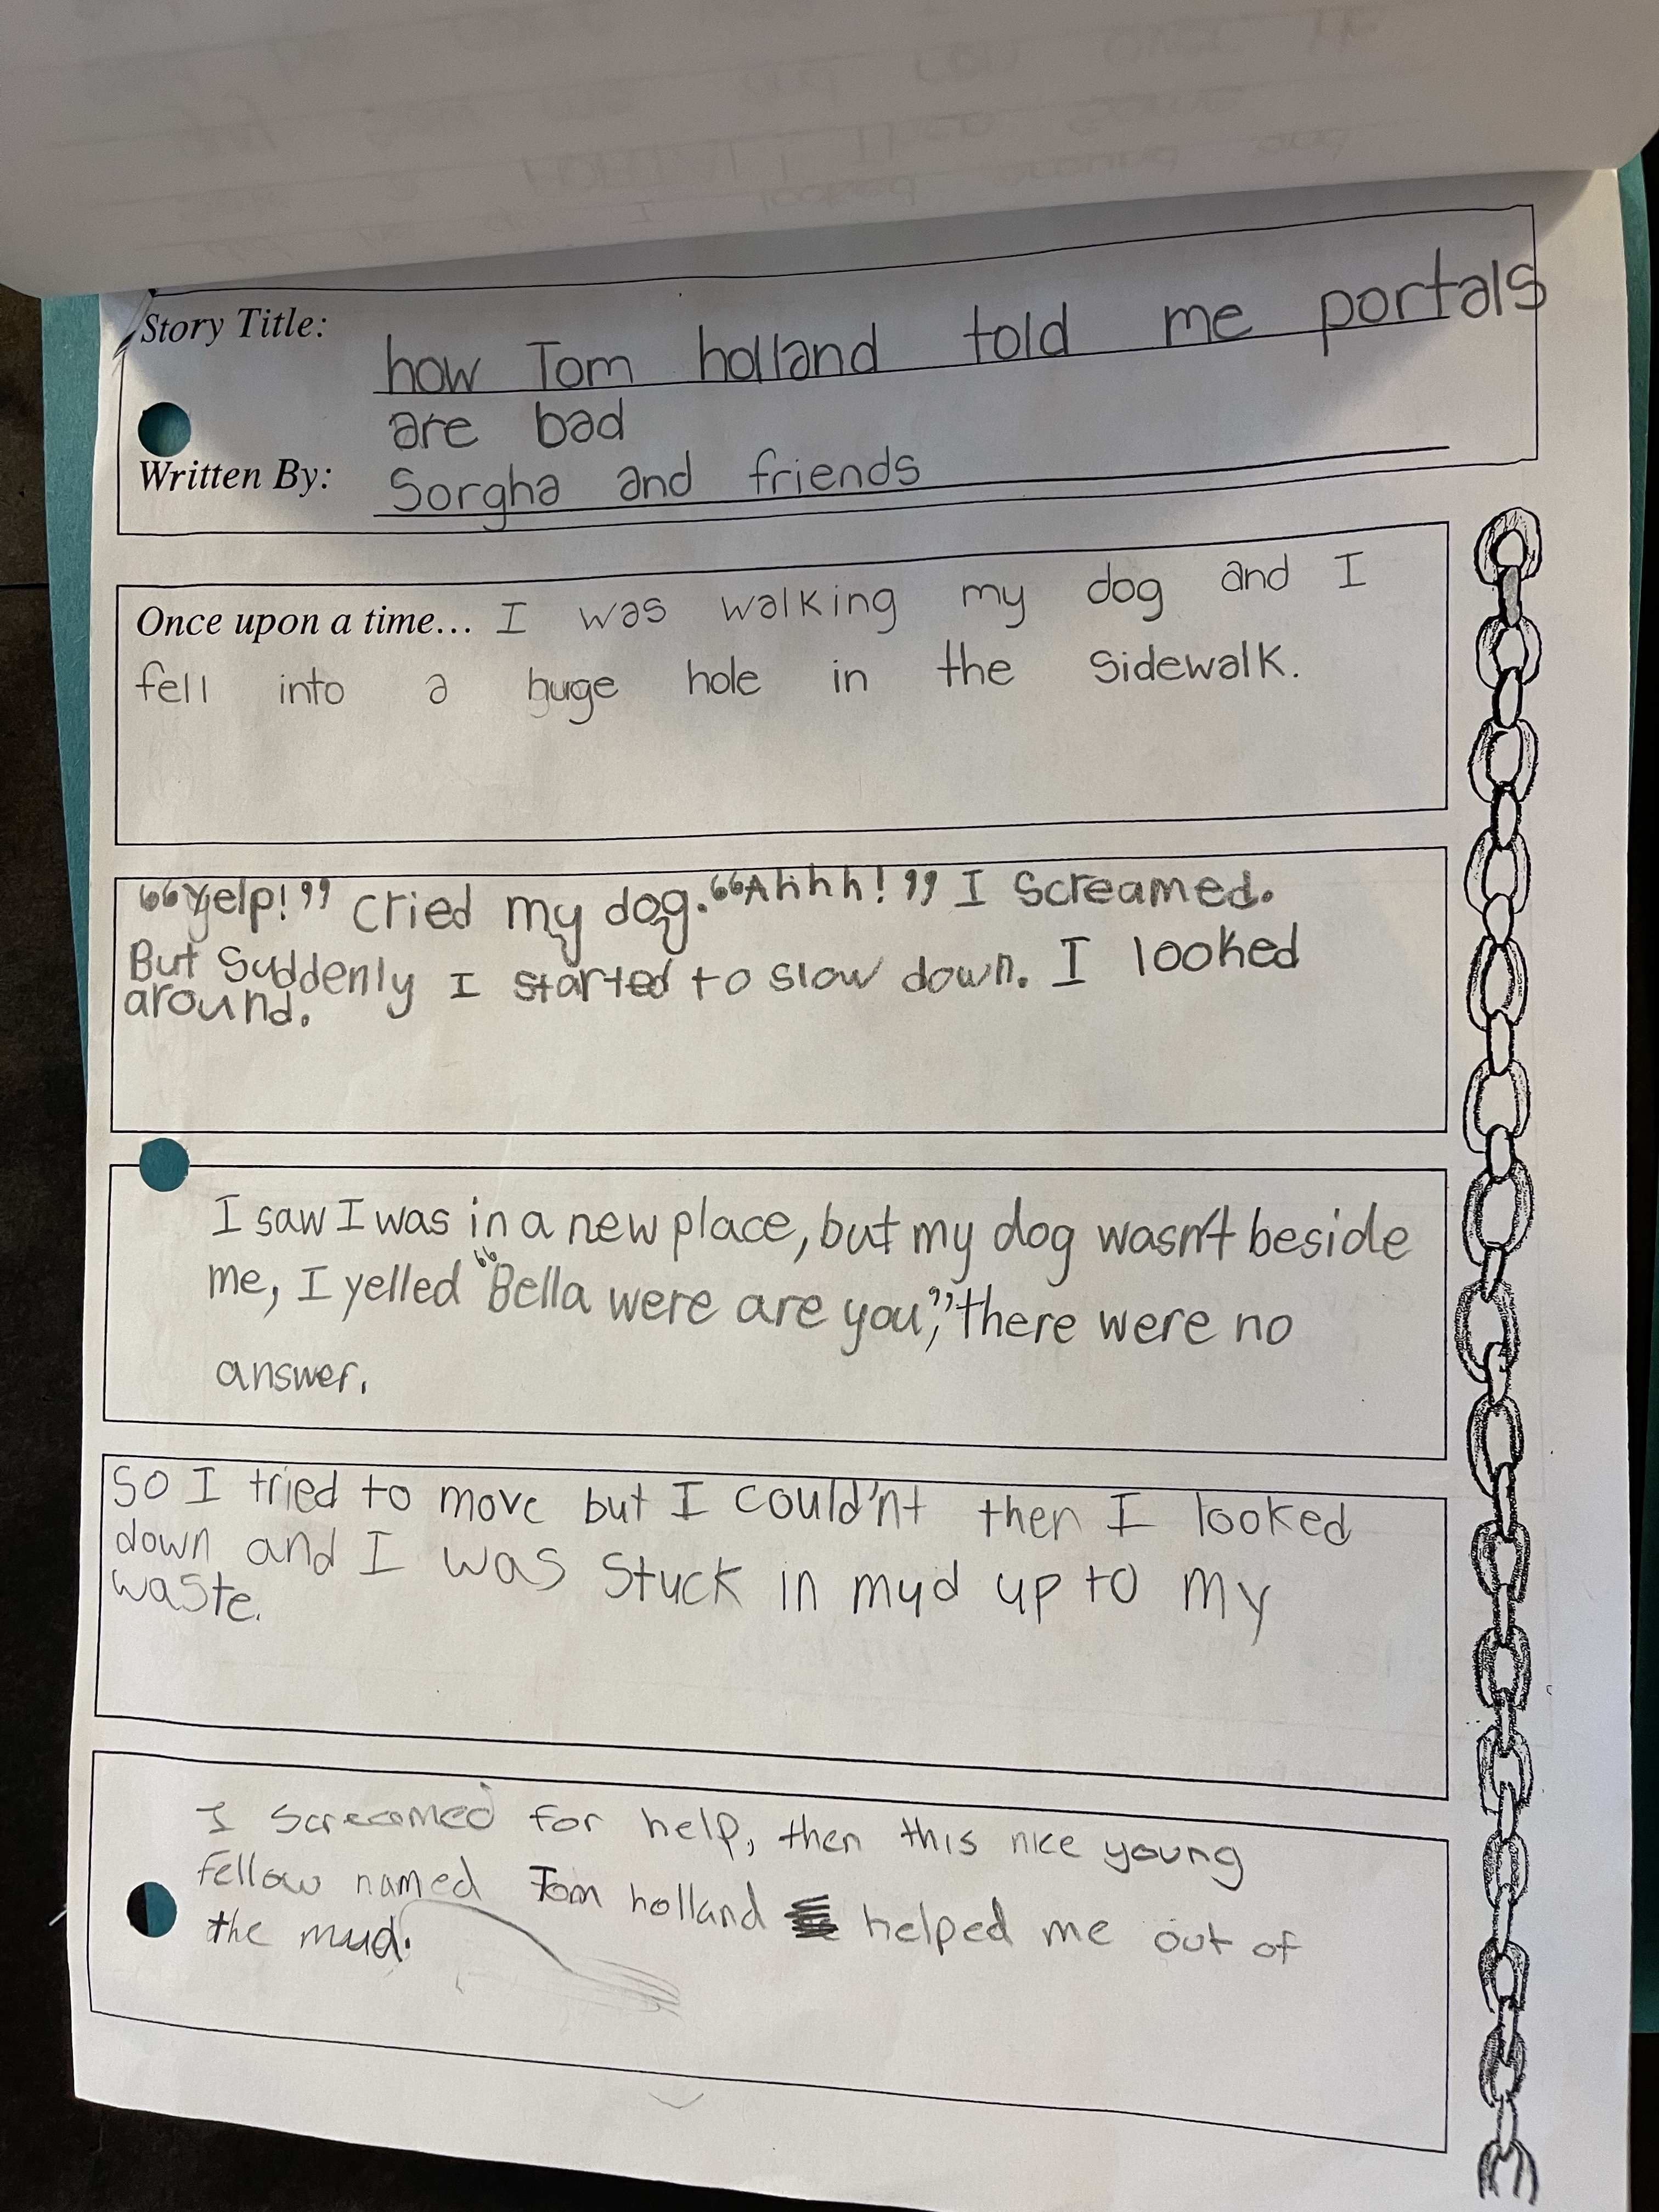 Story Title: how Tom holland told me portals
are bad
Written By: Sorgha and friends
Once upon a time... I was walking my dog and I
fell into a huge hole in the sidewalk.
“Yelp!” cried my dog. “Ahhh!” I screamed.
But suddenly I started to slow down. I looked
around.
I saw I was in a new place, but my dog wasn't beside
me, I yelled “Bella were are you,” there were no
answer.
So I tried to move but I could'nt then I looked
down and I was stuck in mud up to my
waste.
I screamed for help, then this nice young
fellow named Tom holland helped me out of
the mud.